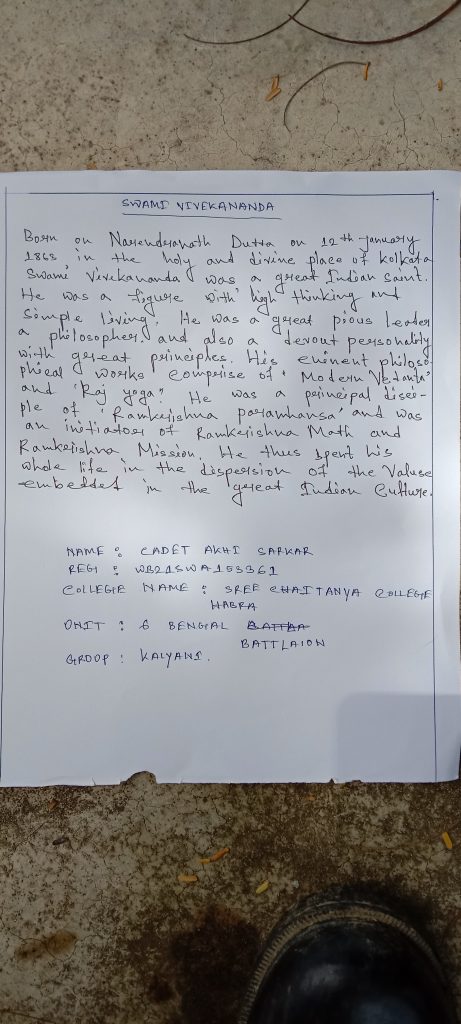 SWAMI VIVEKANANDA
Born on Narendranath Dutta on 12th January
1863 in the holy and divine place of Kolkata
Swami Vivekananda was a great Indian saint.
He was a figure with high thinking and
Simple living. He was a great pious leader
a philosopher and also a devout personality
with great principles. His eminent philoso-
phical works comprise of 'Modern Vedanta'
and 'Raj yoga'. He was a principal disci-
ple of 'Ramkrishna paramhansa' and was
an initiator of Ramkrishna Math and
Ramkrishna Mission. He thus spent his
whole life in the dispersion of the Valuse
embedded in the great Indian Culture.
NAME : CADET AKHI SARKAR
REGI : WB21SWA153361
COLLEGE NAME : SREE CHAITANYA COLLEGE
HABRA
UNIT : 6 BENGAL BATTAA
BATTLAION
GROOP : KALYANI.